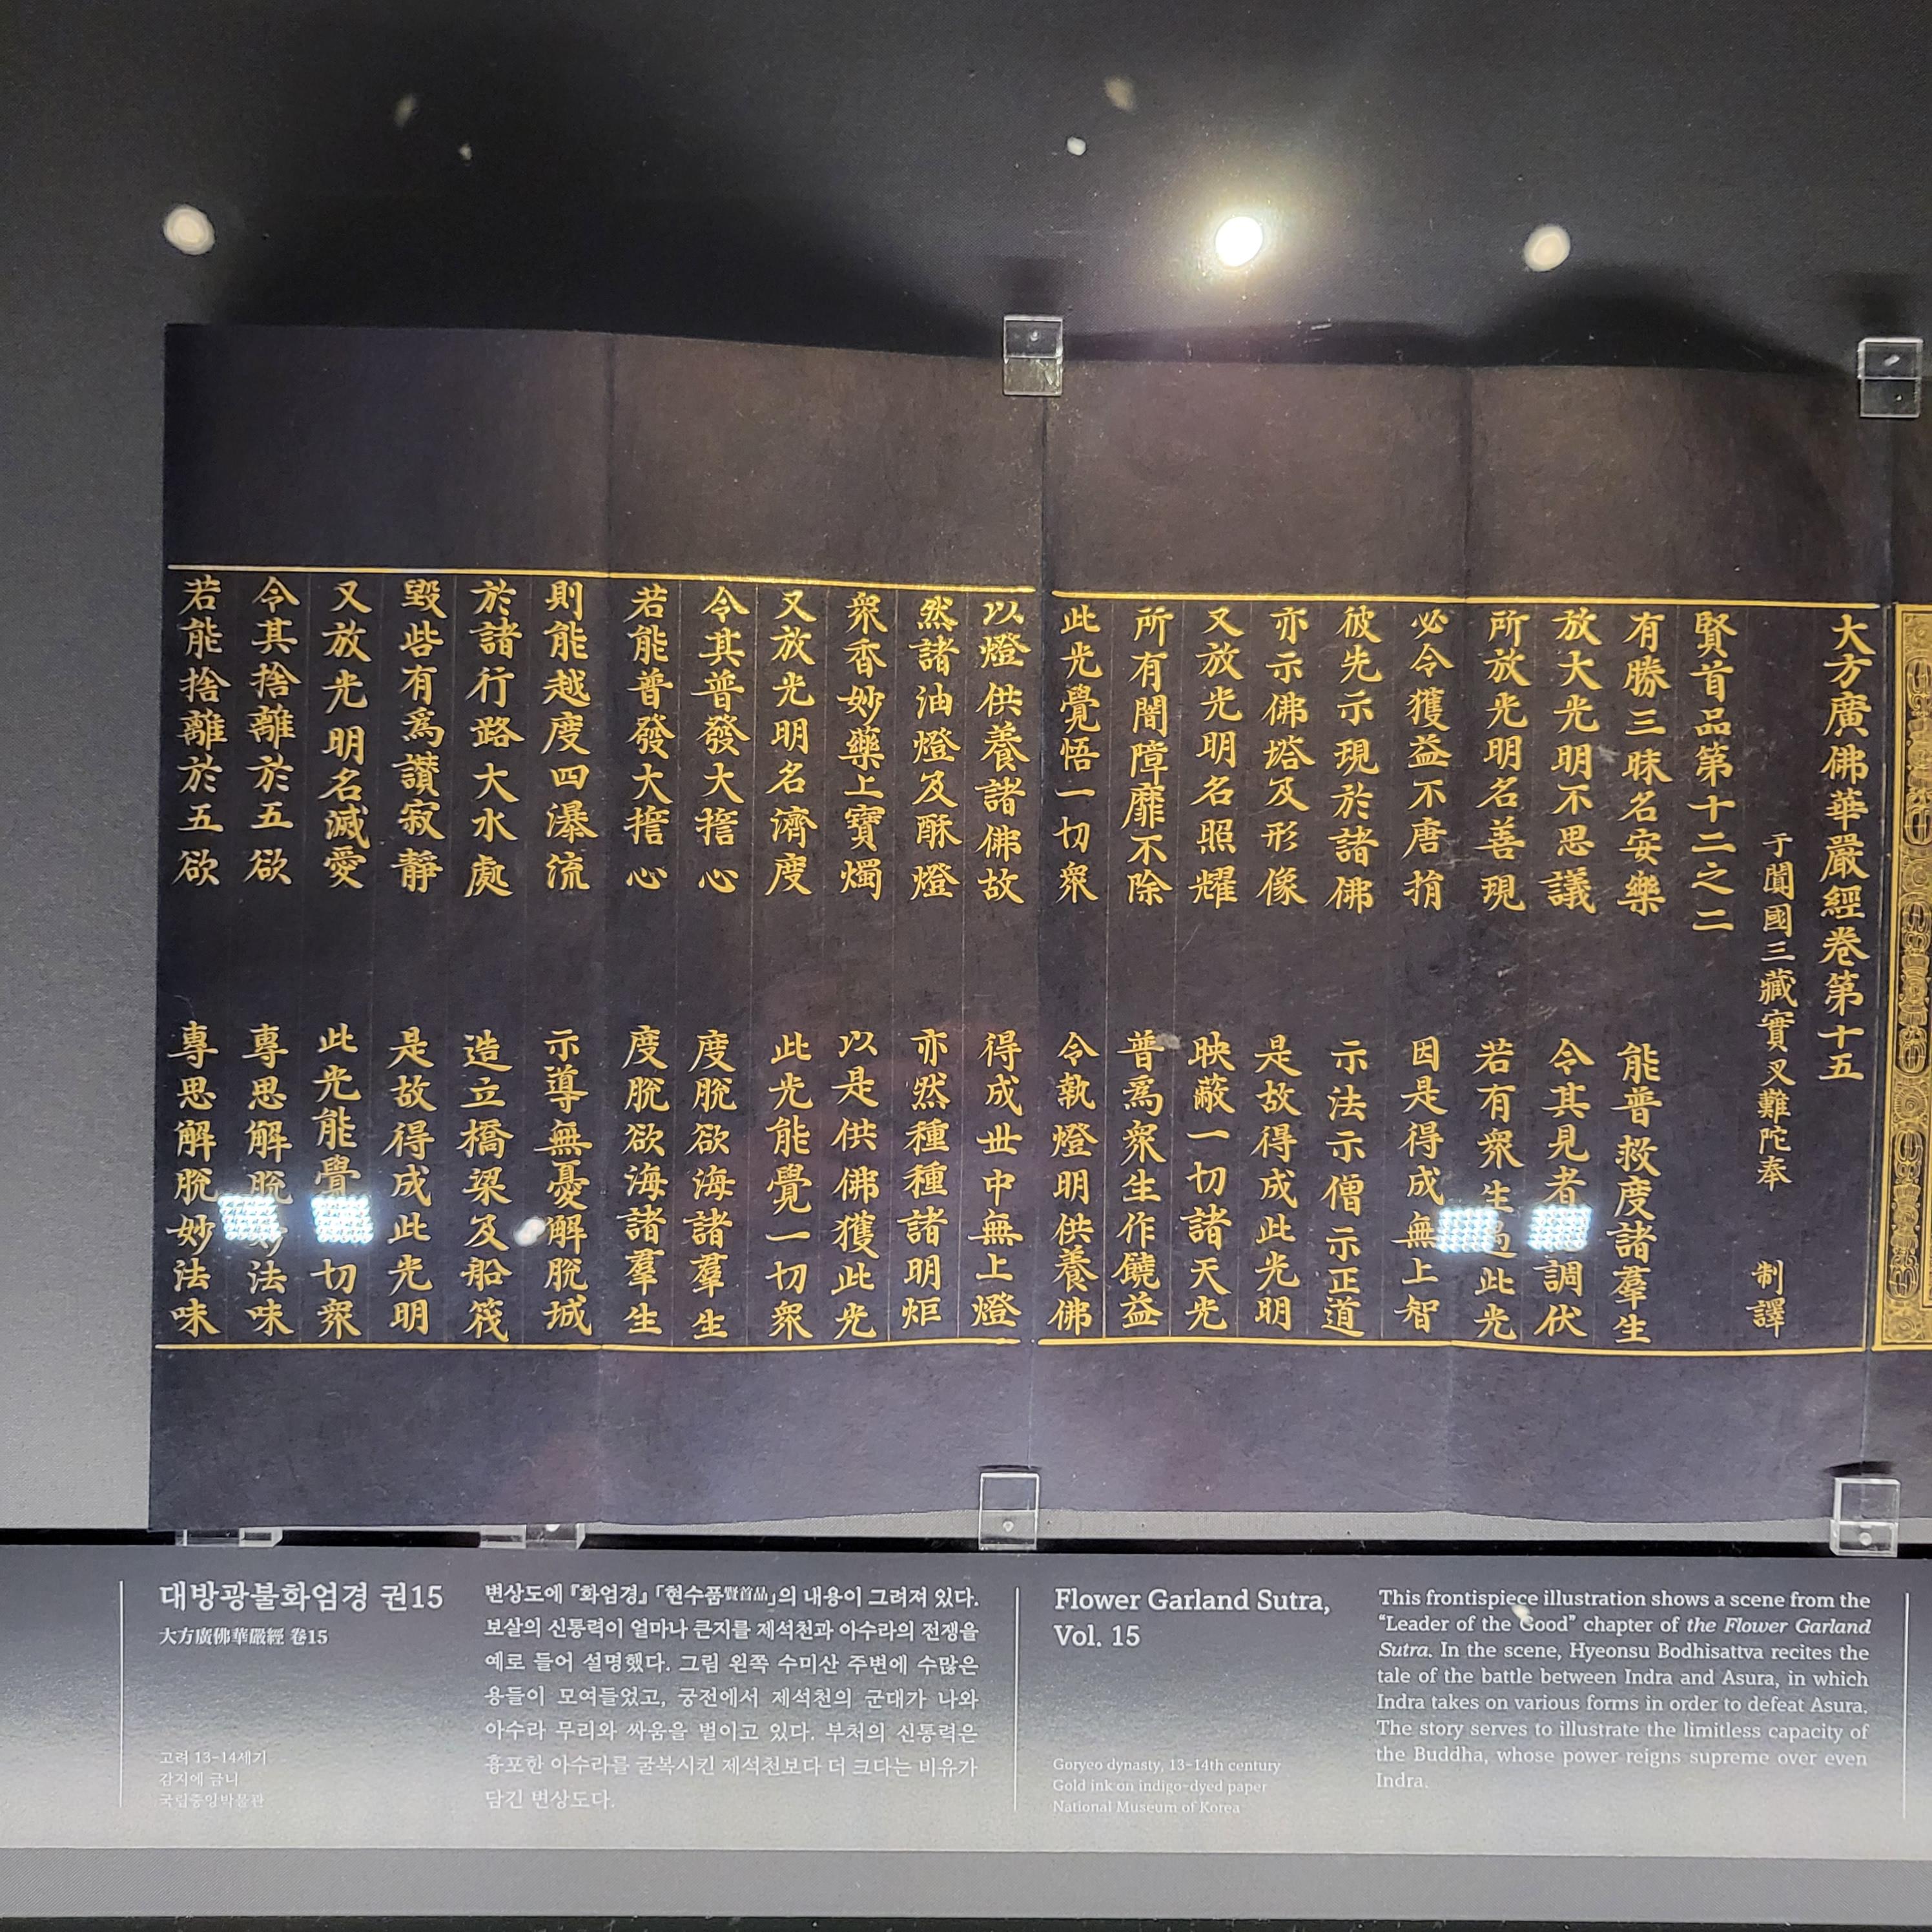 大方廣佛華嚴經卷第十五
于闐國三藏實叉難陀奉 制譯
賢首品第十二之二
有勝三昧名安樂 能普救度諸羣生
放大光明不思議 令其見者調伏
所放光明名善現 若有衆生此光
必令獲益不唐捐 因是得成無上智
彼先示現於諸佛 示法示僧示正道
亦示佛塔及形像 是故得成此光明
又放光明名照耀 映蔽一切諸天光
所有闇障靡不除 普爲衆生作饒益
此光覺悟一切衆 令執燈明供養佛
以燈供養諸佛故 得成世中無上燈
然諸油燈及酥燈 亦然種種諸明炬
衆香妙藥上寶燭 以是供佛獲此光
又放光明名濟度 此光能覺一切衆
令其普發大誓心 度脫欲海諸羣生
若能普發大誓心 度脫欲海諸羣生
則能越度四瀑流 示導無憂解脫城
於諸行路大水處 造立橋梁及船筏
毀呰有爲讚寂靜 是故得成此光明
又放光明名滅愛 此光能覺切衆
令其捨離於五欲 專思解脫妙法味
若能捨離於五欲 專思解脫妙法味
대방광불화엄경 권15
大方廣佛華嚴經 卷15
고려 13-14세기
감지에 금니
국립중앙박물관
변상도에 『화엄경』 「현수품賢首品」의 내용이 그려져 있다.
보살의 신통력이 얼마나 큰지를 제석천과 아수라의 전쟁을
예로 들어 설명했다. 그림 왼쪽 수미산 주변에 수많은
용들이 모여들었고, 궁전에서 제석천의 군대가 나와
아수라 무리와 싸움을 벌이고 있다. 부처의 신통력은
흉포한 아수라를 굴복시킨 제석천보다 더 크다는 비유가
담긴 변상도다.
Flower Garland Sutra,
Vol. 15
Goryeo dynasty, 13-14th century
Gold ink on indigo-dyed paper
National Museum of Korea
This frontispiece illustration shows a scene from the
“Leader of the Good” chapter of the Flower Garland
Sutra. In the scene, Hyeonsu Bodhisattva recites the
tale of the battle between Indra and Asura, in which
Indra takes on various forms in order to defeat Asura.
The story serves to illustrate the limitless capacity of
the Buddha, whose power reigns supreme over even
Indra.